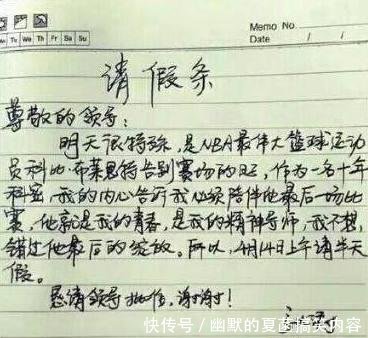 Memo No.
Mo Tu We Th Fr Sa Su
Date / /
请假条
尊敬的领导:
明天很特殊,是NBA最伟大篮球运动
员科比·布莱恩特告别赛场的日子,作为一名十年
科蜜,我的内心告诉我必须陪伴他最后一场比
赛,他就是我的青春,是我的精神导师,我不想
错过他最后的绽放。所以,4月14日上午请半天
假。
恳请领导批准,谢谢!
快传号/幽默的夏菡搞笑内容